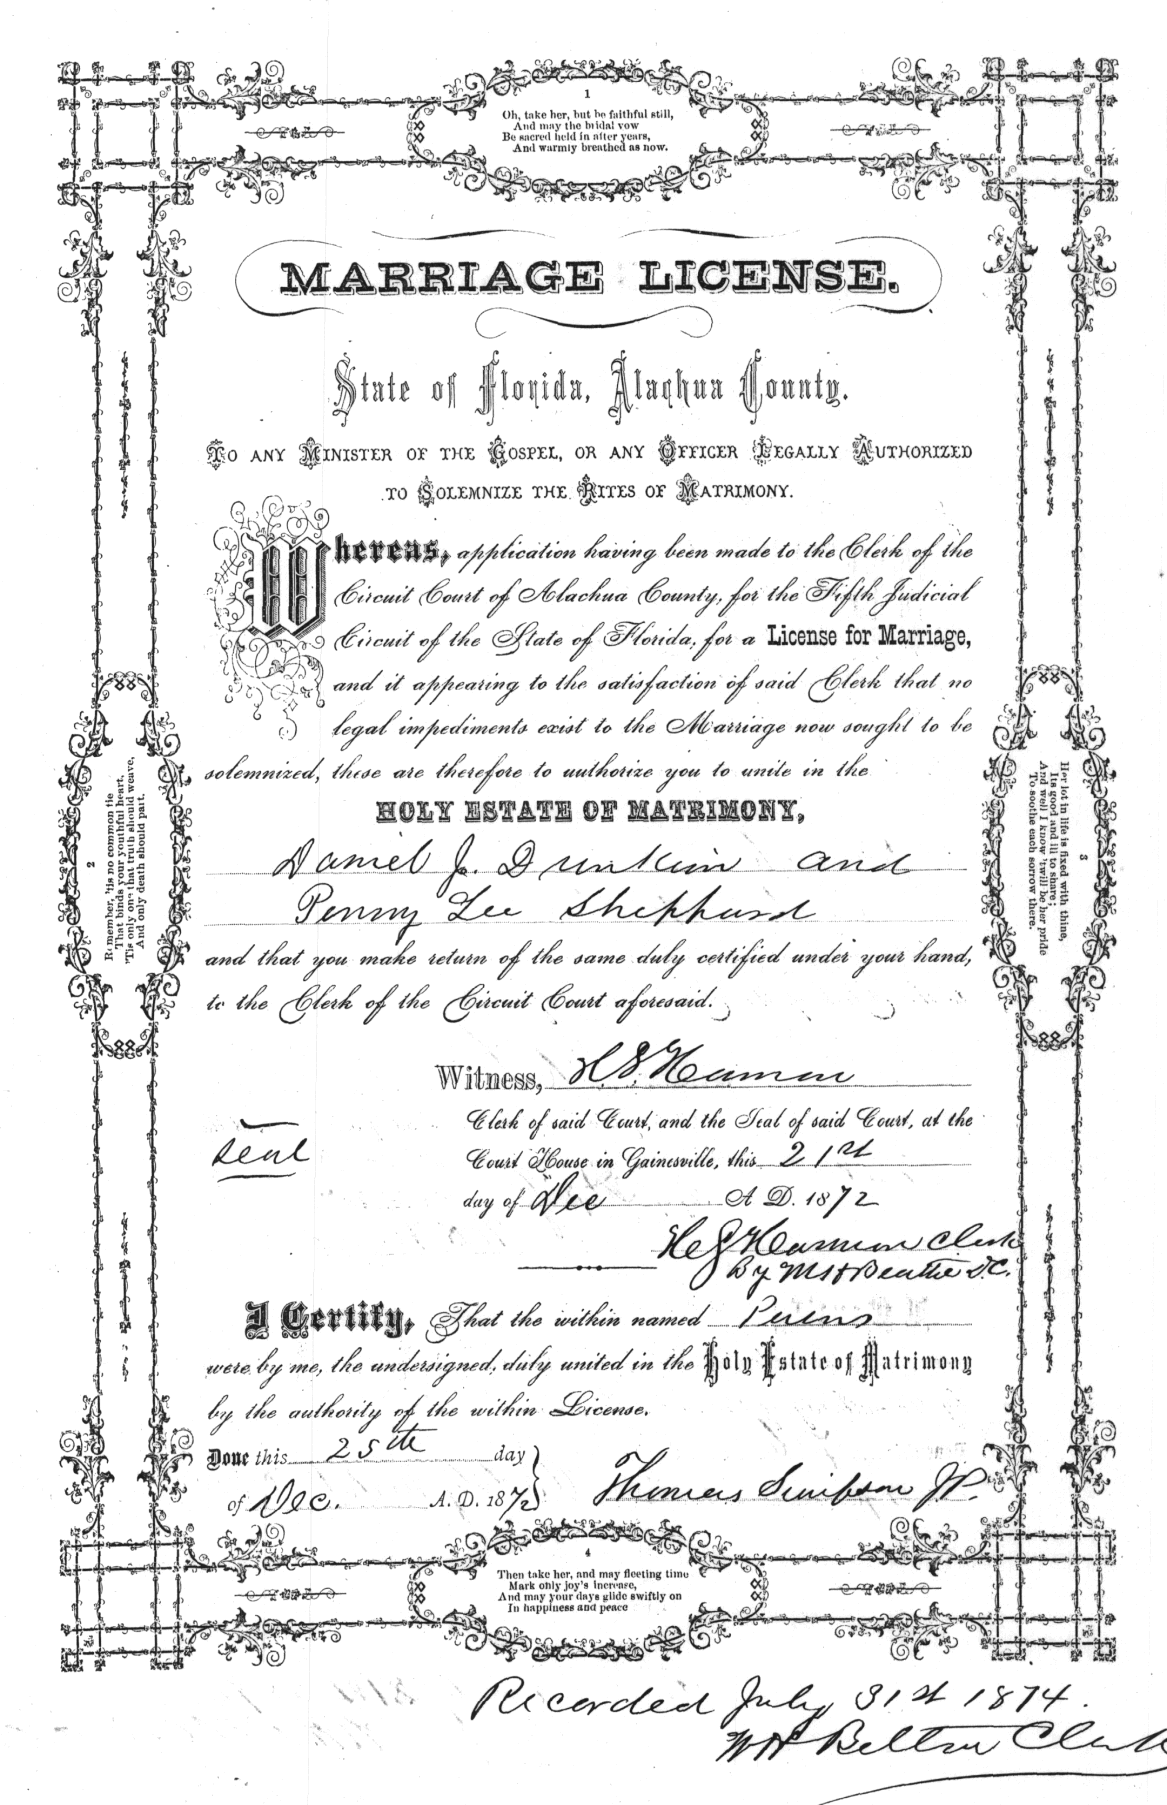 1
Oh, take her, but be faithful still,
And may the bridal vow
Be sacred held in after years,
And warmly breathed as now.
MARRIAGE LICENSE.
State of Florida, Alachua County.
TO ANY MINISTER OF THE GOSPEL, OR ANY OFFICER LEGALLY AUTHORIZED
TO SOLEMNIZE THE RITES OF MATRIMONY.
Whereas, application having been made to the Clerk of the
Circuit Court of Alachua County, for the Fifth Judicial
Circuit of the State of Florida, for a License for Marriage,
and it appearing to the satisfaction of said Clerk that no
legal impediments exist to the Marriage now sought to be
solemnized, these are therefore to authorize you to unite in the
HOLY ESTATE OF MATRIMONY,
Daniel J. Dunkin and
Penny Lee Shephard
and that you make return of the same duly certified under your hand,
to the Clerk of the Circuit Court aforesaid.
2
Remember, 'tis no common tie
That binds your youthful heart,
'Tis only one that truth should weave,
And only death should part.
3
Her lot in life is fixed with thine,
Its good and ill to share;
And well I know 'twill be her pride
To soothe each sorrow there.
Witness, H.S. Harmon
Clerk of said Court, and the Seal of said Court, at the
seal
Court House in Gainesville, this 21st
day of Dec A D. 1872
Harmon Clerk
By Beattie D.C.
I Certify, That the within named
were by me, the undersigned, duly united in the Holy Estate of Matrimony
by the authority of the within License.
Done this 25th day
of Dec. A. D. 1872
Thomas Simpson JP.
4
Then take her, and may fleeting time
Mark only joy's increase,
And may your days glide swiftly on
In happiness and peace
Recorded July 31st 1874.
Belton Clerk